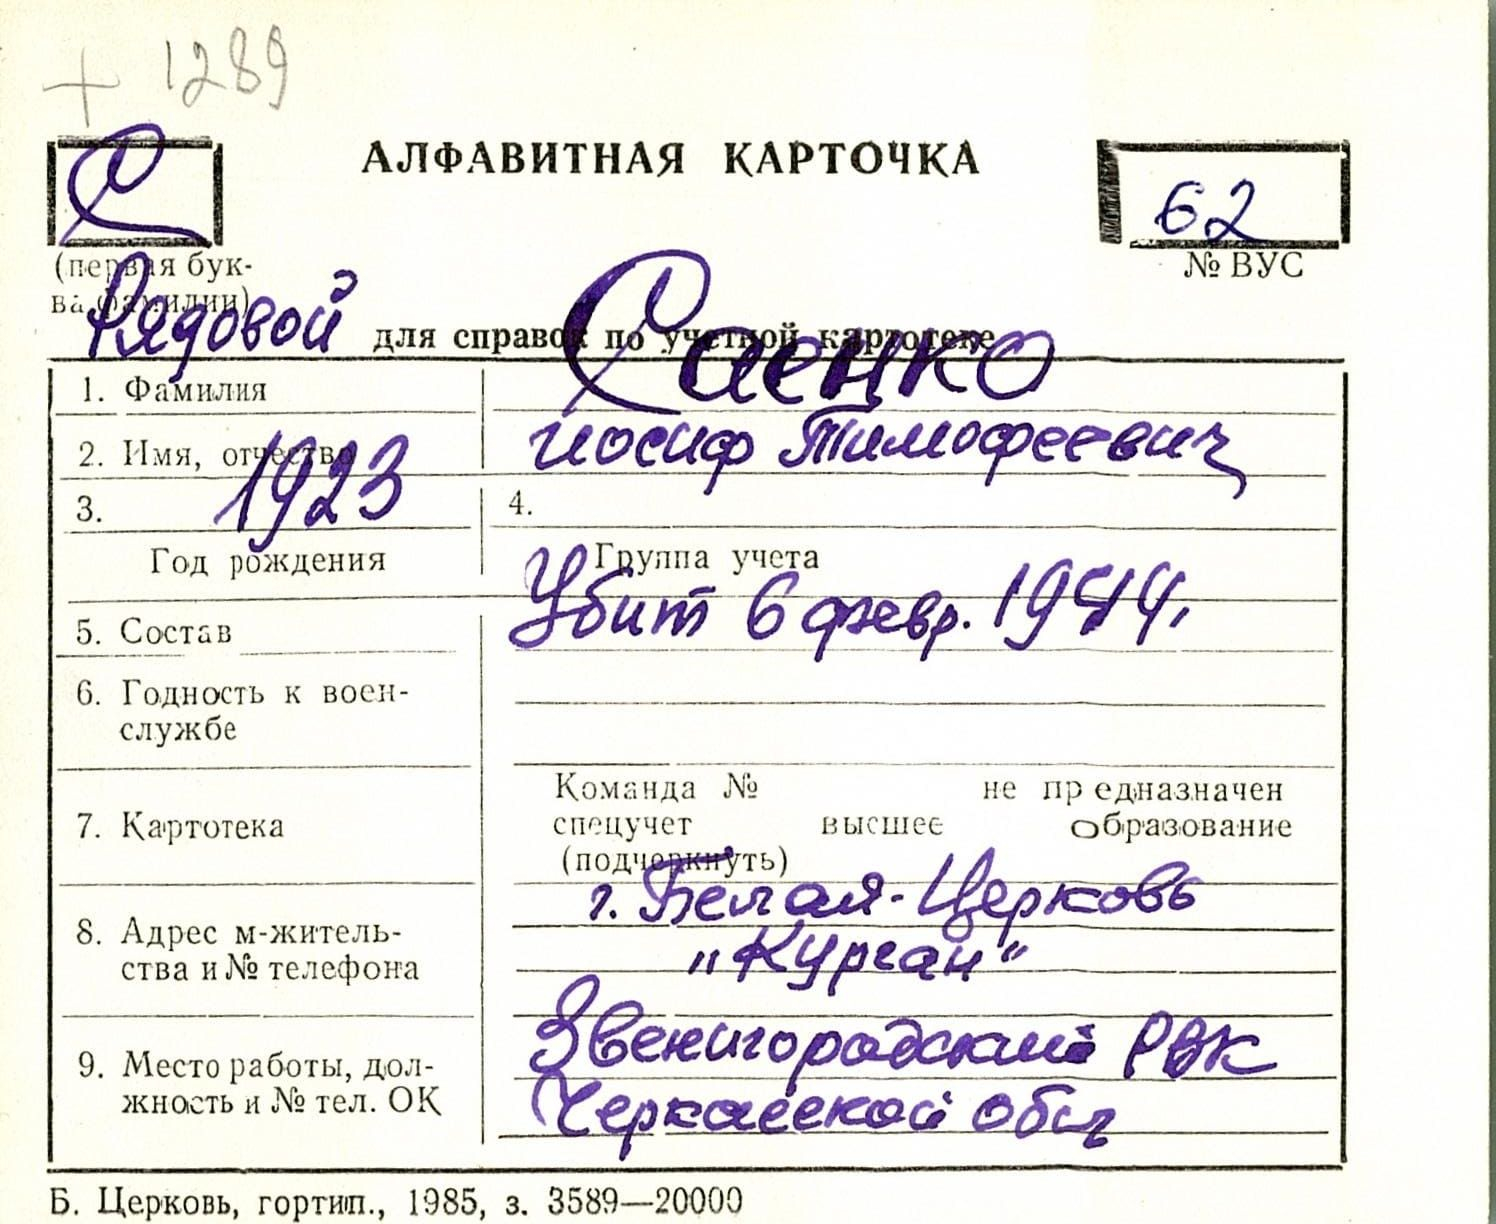 + 1289
С
АЛФАВИТНАЯ КАРТОЧКА
62
(первая бук-
ва фамилии)
№ ВУС
Рядовой
для справок по учетной картотеке
1. Фамилия Саенко
2. Имя, отчество Иосиф Тимофеевич
3. 1923 4.
Год рождения Группа учета
5. Состав Убит 6 февр. 1944.
6. Годность к воен-
службе
Команда № не предназначен
7. Картотека спецучет высшее образование
(подчеркнуть)
г. Белая-Церковь
8. Адрес м-житель-
ства и № телефона „Курган“
Звенигородский РВК
9. Место работы, дол-
жность и № тел. ОК Черкасской обл
Б. Церковь, гортип., 1985, з. 3589—20000